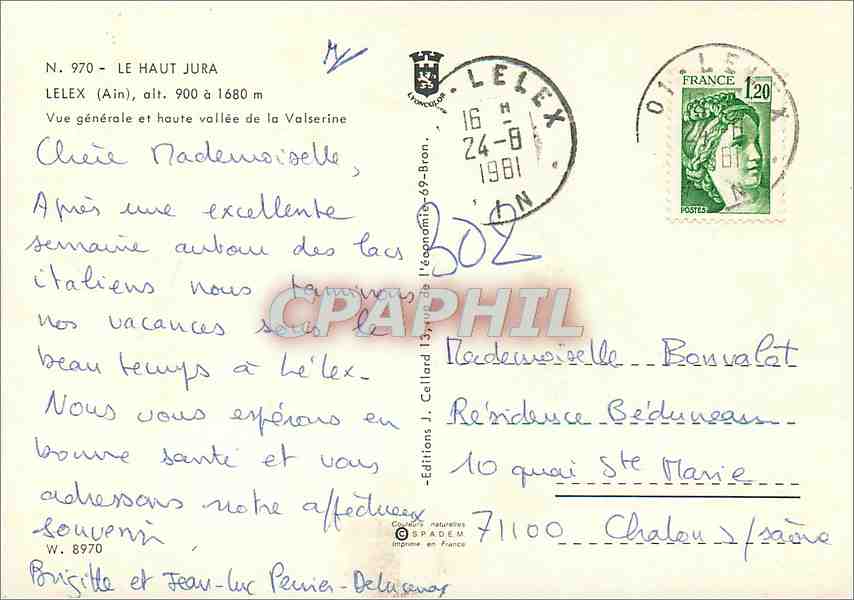 N. 970 - LE HAUT JURA
LELEX (Ain), alt. 900 à 1680 m
Vue générale et haute vallée de la Valserine
Chère Mademoiselle,
Après une excellente
semaine autour des lacs
italiens nous terminons
nos vacances sous le
beau temps à Lélex-
Nous vous espérons en
bonne santé et vous
adressons notre affectueux
souvenir
W. 8970
Brigitte et Jean-Luc
LYONCOLOR
-Editions J. Cellard 13, rue de l'économie-69-Bron.
Couleurs naturelles
© S.P.A.D.E.M.
Imprimé en France
- LELEX
16 H
24-8
1981
IN
302
01 - LELEX
81
N
FRANCE
1,20
POSTES
CPAPHIL
Mademoiselle Bonvalot
Résidence Béduneau
10 quai Ste Marie
71100 Chalon s/saône